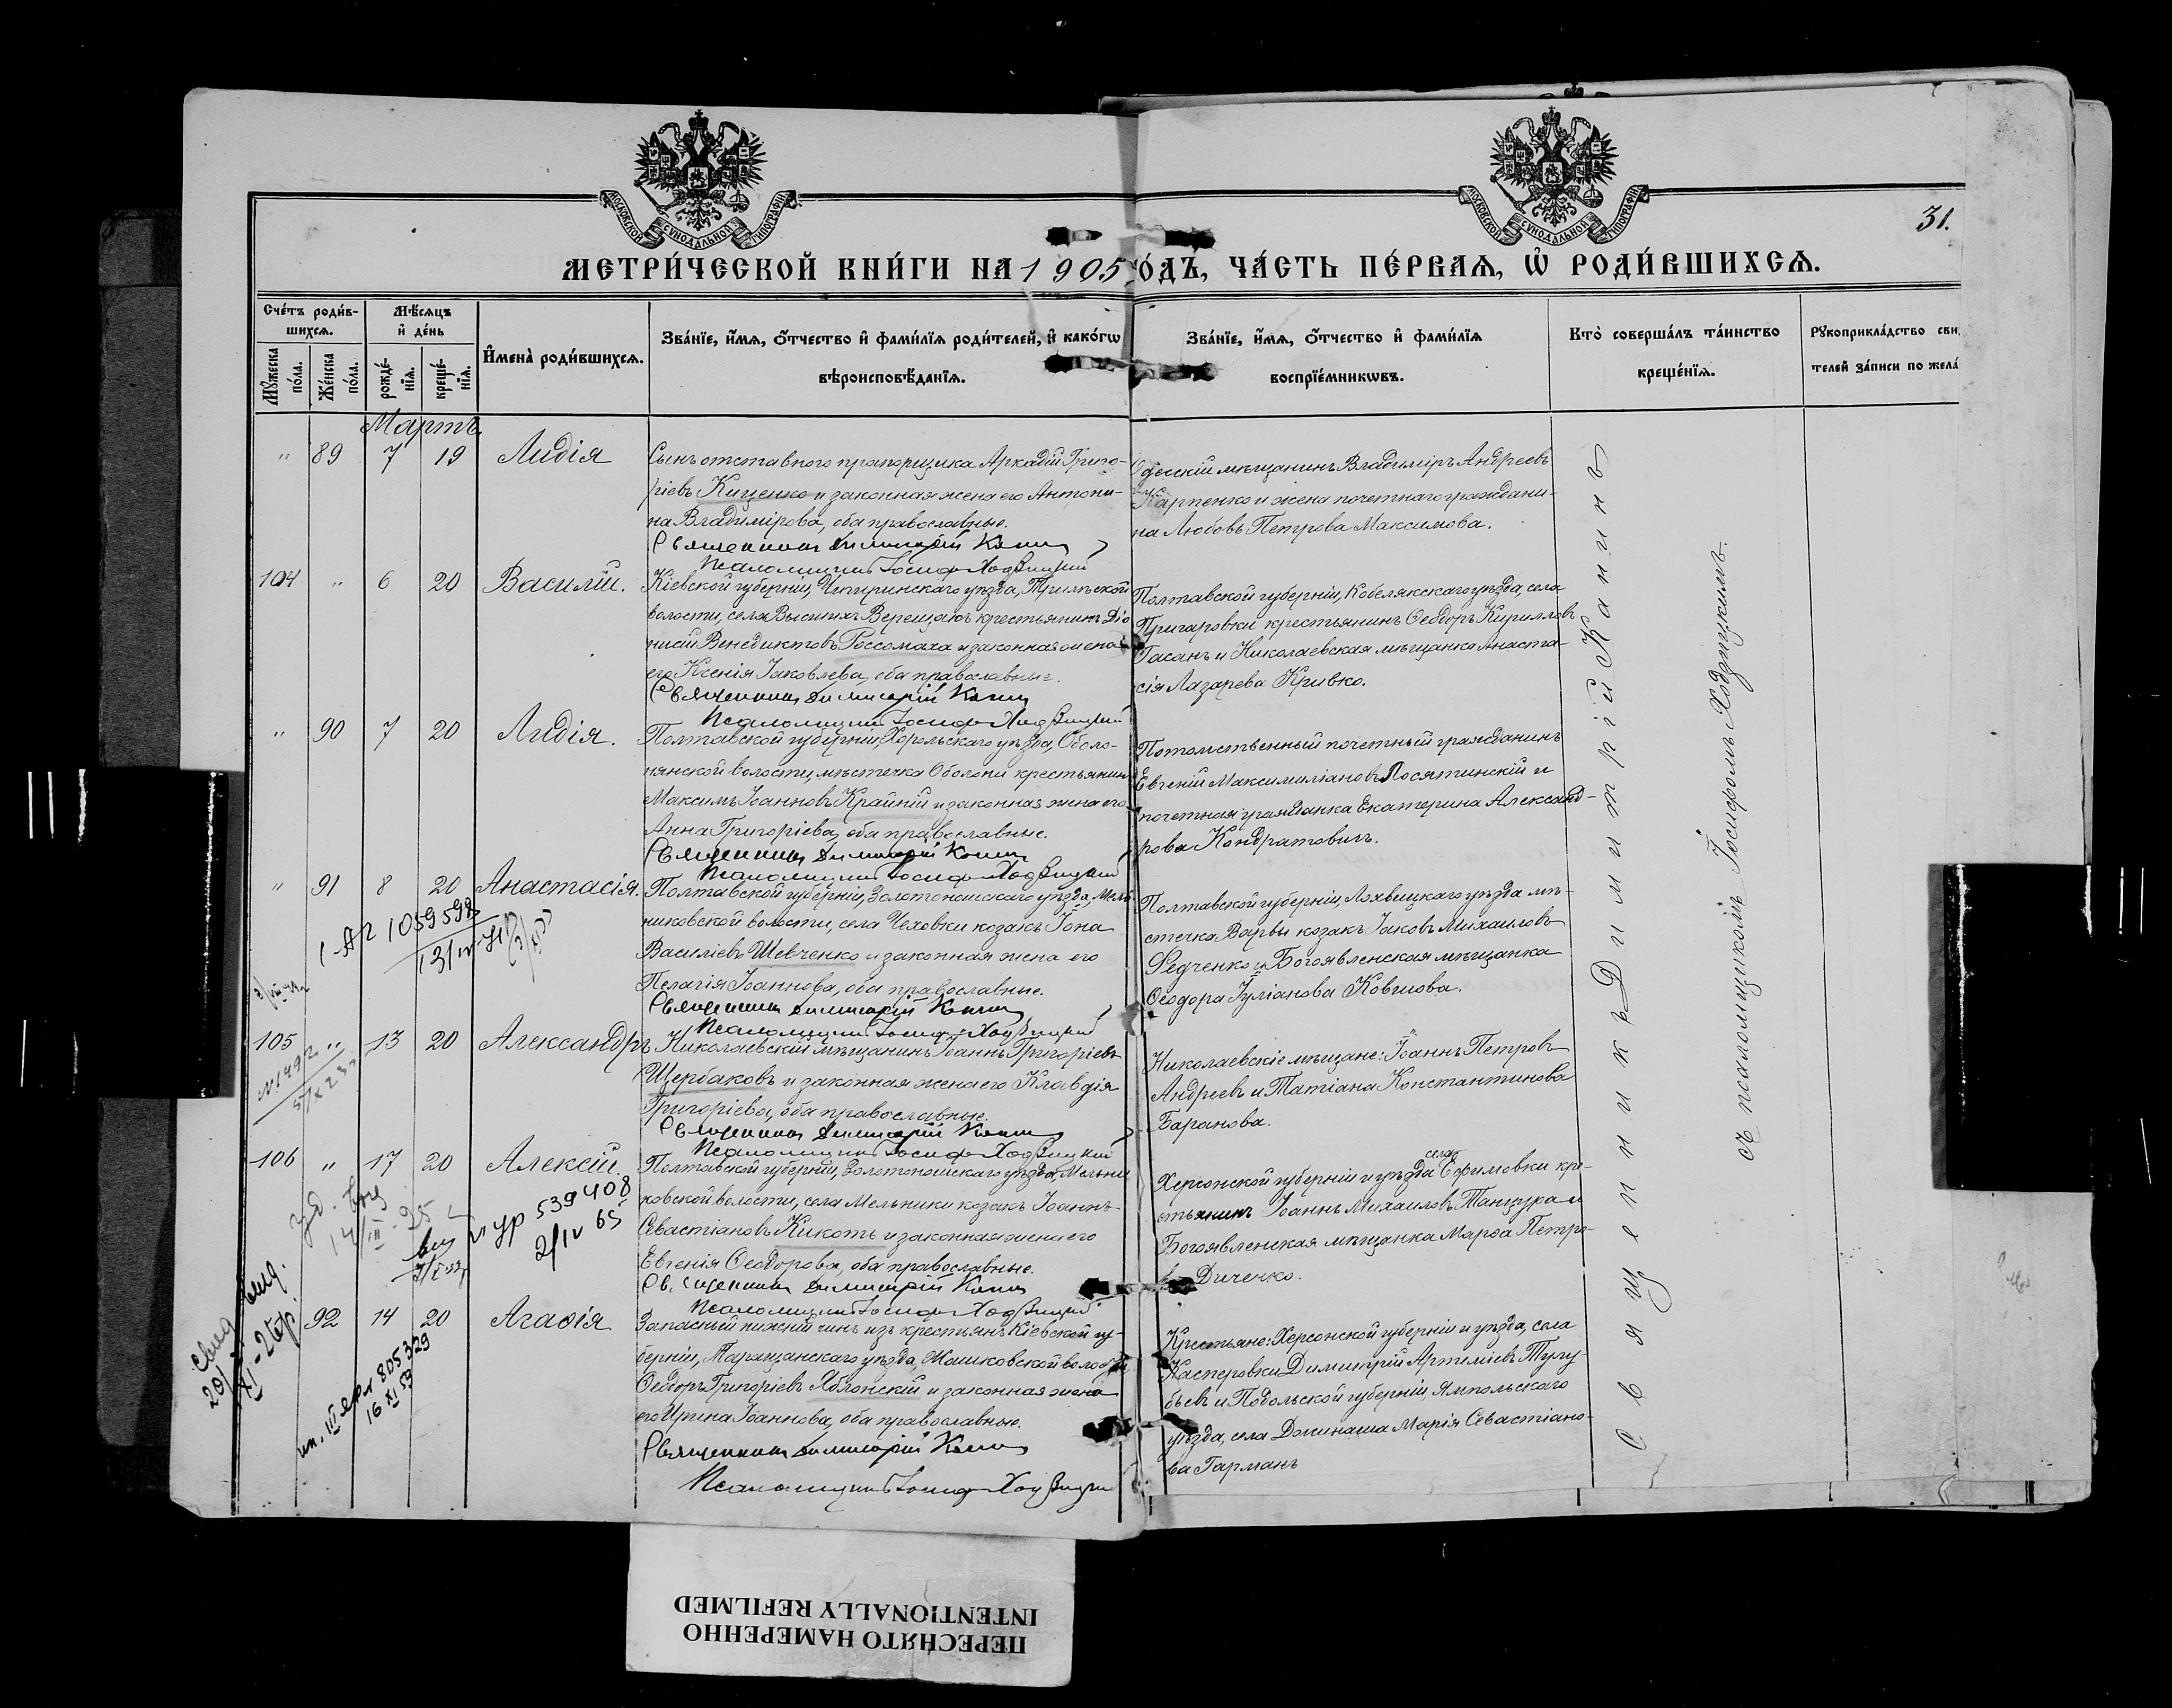 МОСКОВСКОЙ СѴНОДАЛЬНОЙ ТИПОГРАФІИ
МОСКОВСКОЙ СѴНОДАЛЬНОЙ ТИПОГРАФІИ
31.
МЕТРИ́ЧЕСКОЙ КНИ́ГИ НА 1905 ГО́ДЪ, ЧА́СТЬ ПЕ́РВАѦ, Ѡ҆ РОДИ́ВШИХСѦ.
Сче́тъ роди́в-
шихсѧ.
Мѣ́сѧцъ
и҆ де́нь
Мꙋ́жеска
по́ла.
Же́нска
по́ла.
рожде́-
нїѧ.
креще́-
нїѧ.
И҆мена̀ роди́вшихсѧ.
Зва́нїе, и҆́мѧ, ѻ҆́тчество и҆ фами́лїѧ роди́телей, и҆ како́гѡ
вѣроисповѣ́данїѧ.
Зва́нїе, и҆́мѧ, ѻ҆́тчество и҆ фами́лїѧ
воспрїе́мникѡвъ.
Кто̀ соверша́лъ та́инство
креще́нїѧ.
Рꙋкоприкла́дство сви
телей за́писи по жела́
Мартъ
" 89 7 19 Лидія
Сынъ отставного прапорщика Аркадій Григо-
ріевъ Киценко и законная жена его Антони-
на Владимірова, оба православные.
Священникъ Димитрій Канинъ
Псаломщикъ Іосифъ Ходзицкій
Одесскій мѣщанинъ Владиміръ Андреевъ
Карпенко и жена почетнаго граждани-
на Любовь Петрова Максимова.
104 " 6 20 Василій.
Кіевской губерніи, Чигиринскаго уѣзда, Трилѣской
волости, села Высшихъ Верещакъ крестьянинъ Діо
нисій Венедиктовъ Россомаха и законная жена
его Ксенія Іаковлева, оба православные.
Священникъ Димитрій Канинъ
Псаломщикъ Іосифъ Ходзицкій
Полтавской губерніи, Кобелякскаго уѣзда, села
Пригаровки крестьянинъ Ѳеодоръ Кирилловъ
Гасанъ и Николаевская мѣщанка Анаста-
сія Лазарева Кривко.
" 90 7 20 Лидія.
Полтавской губерніи, Хорольскаго уѣзда, Оболо-
нянской волости, мѣстечка Оболони крестьянинъ
Максимъ Іоанновъ Крайній и законная жена его
Анна Григоріева, оба православные.
Священникъ Димитрій Канинъ
Псаломщикъ Іосифъ Ходзицкій
Потомственный почетный гражданинъ
Евгеній Максимиліановъ Посятинскій и
почетная гражданка Екатерина Александ-
рова Кондратовичъ.
" 91 8 20 Анастасія.
Полтавской губерніи, Золотоношскаго уѣзда, Мель
никовской волости, села Чеховки козакъ Іона
Василіевъ Шевченко и законная жена его
Пелагія Іоаннова, оба православные.
Священникъ Димитрій Канинъ
Псаломщикъ Іосифъ Ходзицкій
Полтавской губерніи, Лохвицкаго уѣзда мѣ-
стечка Варвы козакъ Іаковъ Михаиловъ
Федченко и Богоявленская мѣщанка
Ѳеодора Іуліанова Ковшова.
105 " 13 20 Александръ
Николаевскій мѣщанинъ Іоаннъ Григоріевъ
Щербаковъ и законная жена его Клавдія
Григоріева, оба православные.
Священникъ Димитрій Канинъ
Псаломщикъ Іосифъ Ходзицкій
Николаевскіе мѣщане: Іоаннъ Петровъ
Андреевъ и Татіана Константинова
Баранова.
106 " 17 20 Алексій.
539408
2/IV 65
Полтавской губерніи, Золотоношскаго уѣзда, Мельни
ковской волости, села Мельники козакъ Іоаннъ
Севастіановъ Кикоть и законная жена его
Евгенія Ѳеодорова, оба православные.
Священникъ Димитрій Канинъ
Псаломщикъ Іосифъ Ходзицкій
Херсонской губерніи и уѣзда села Ефимовки кре-
стьянинъ Іоаннъ Михаиловъ Танцура и
Богоявленская мѣщанка Марѳа Петро-
ва Диченко.
92 14 20 Агаѳія
805329
16 XI 53
Запасный нижній чинъ изъ крестьянъ Кіевской гу-
берніи, Таращанскаго уѣзда, Жашковской волости
Ѳеодоръ Григоріевъ Яблонскій и законная жена
его Ирина Іоаннова, оба православные.
Священникъ Димитрій Канинъ
Псаломщикъ Іосифъ Ходзицкій
Крестьяне: Херсонской губерніи и уѣзда, села
Касперовки Димитрій Артеміевъ Тулу-
бьевъ и Подольской губерніи, Ямпольскаго
уѣзда, села Джинаша Марія Севастіано-
ва Гарманъ
Священникъ Димитрій Канинъ
съ псаломщикомъ Іосифомъ Ходзицкимъ.
ПЕРЕСНЯТО НАМЕРЕННО
INTENTIONALLY REFILMED